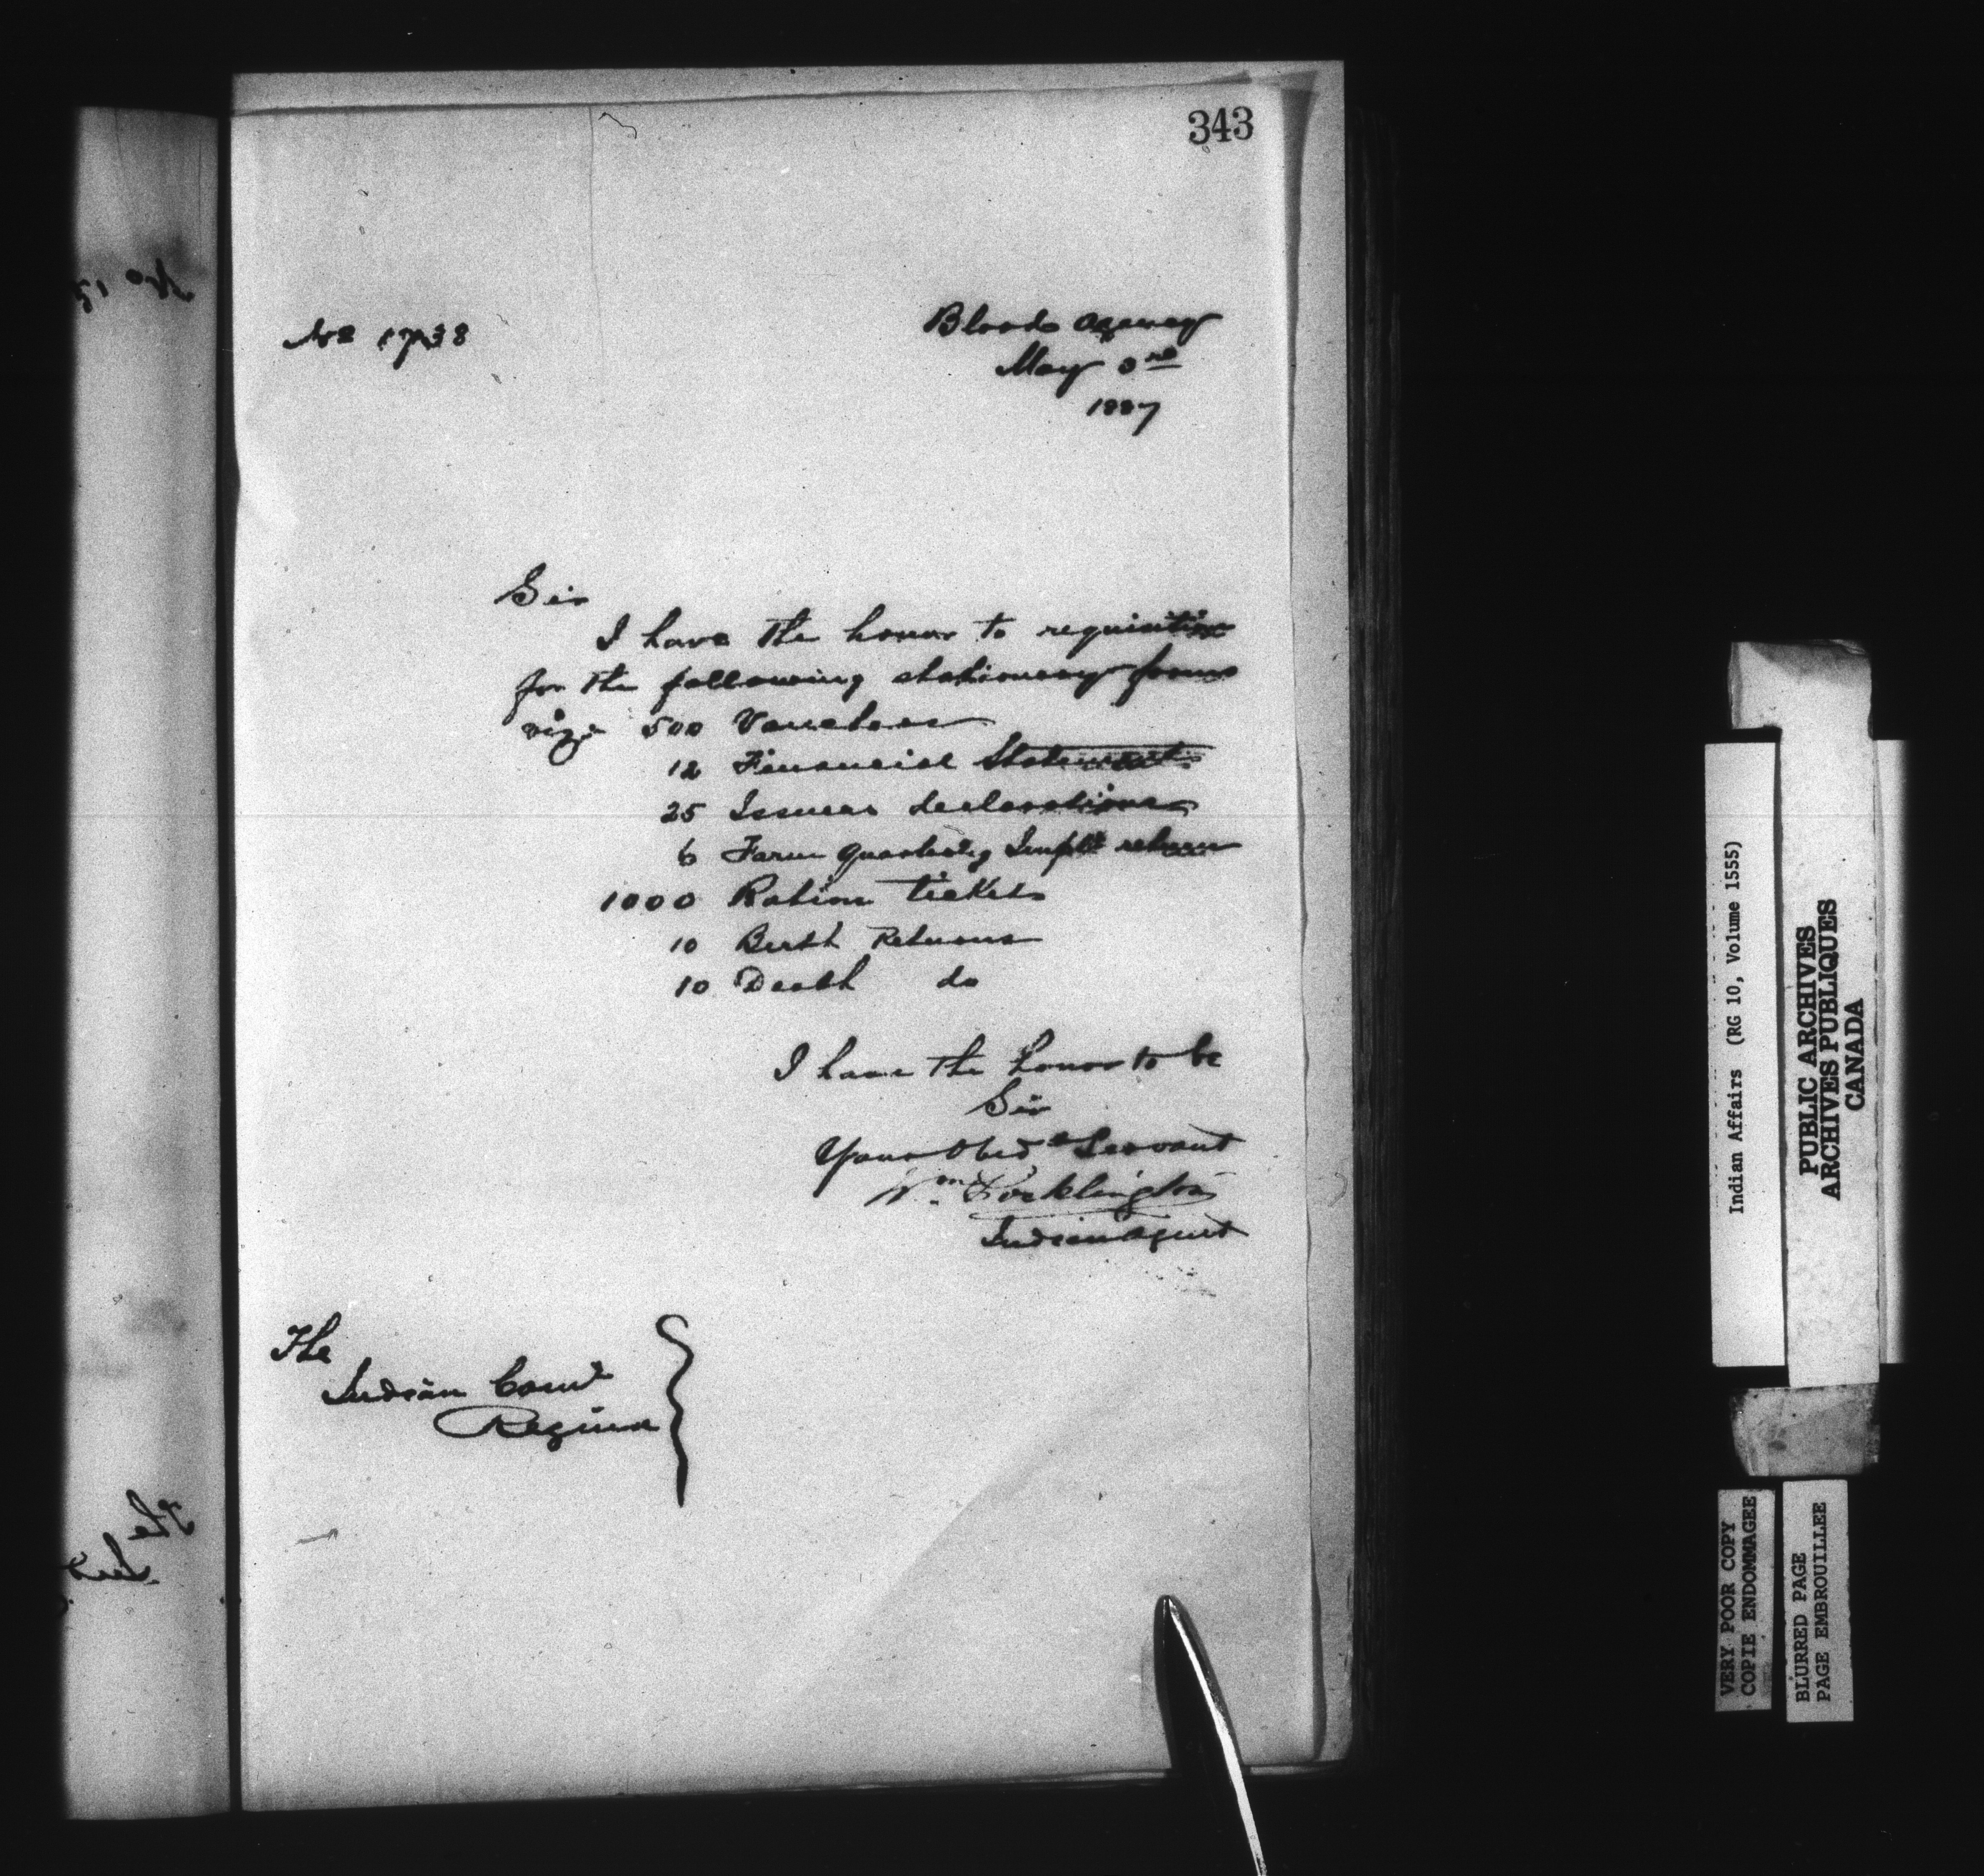 343
No 1738
Bloods Agency
May 3rd
1887
Sir
I have the honor to requisition
for the following stationery forms
viz: 500 Vouchers
12 Financial Statements
25 Issuers declarations
6 Farm Quarterly Implt return
1000 Ration tickets
10 Birth Returns
10 Death do
I have the honor to be
Sir
Your Obed Servant
Wm Pocklington
Indian Agent
The
Indian Comr
Regina
Indian Affairs (RG 10, Volume 1555)
PUBLIC ARCHIVES
ARCHIVES PUBLIQUES
CANADA
VERY POOR COPY
COPIE ENDOMMAGEE
BLURRED PAGE
PAGE EMBROUILLEE